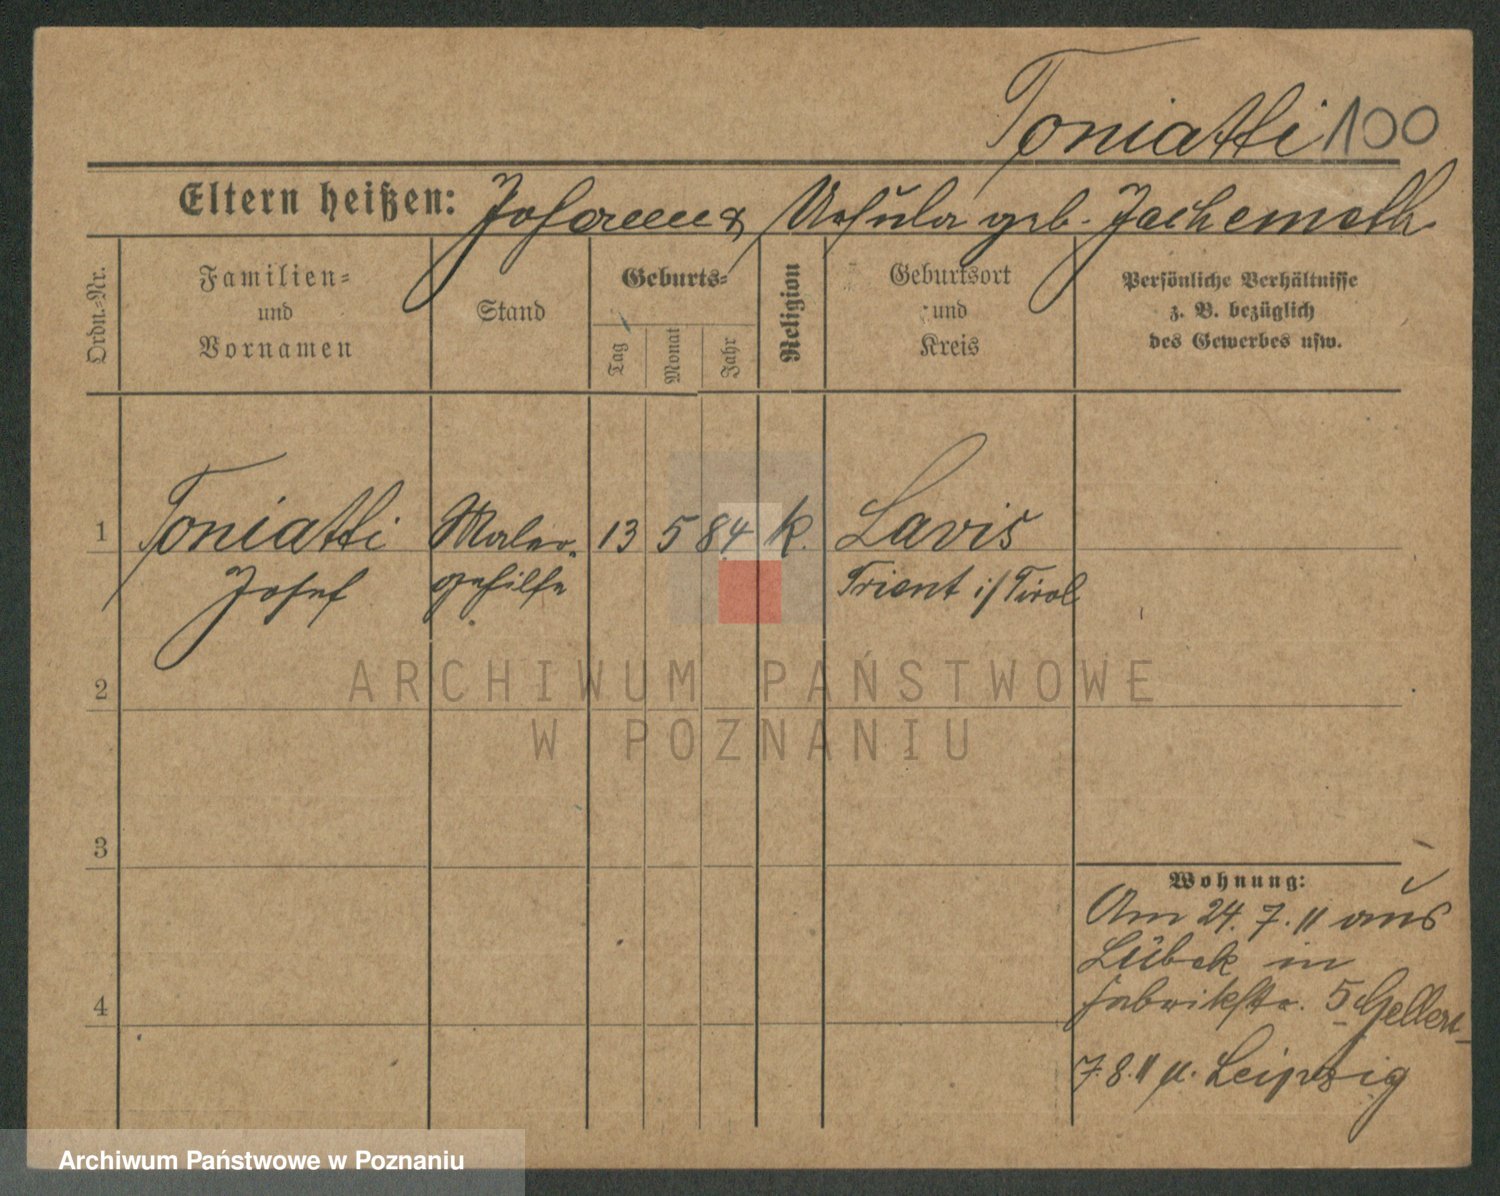 Toniatti 100
Eltern heißen: Johann & Ursula geb. Jachemeth
Ordn.-Nr.
Familien-
und
Vornamen
Stand
Geburts-
Tag
Monat
Jahr
Religion
Geburtsort
und
Kreis
Persönliche Verhältnisse
z. B. bezüglich
des Gewerbes usw.
1 Toniatti Maler- 13 5 84 k. Lavis
Josef gehilfe Trient i/Tirol
2
ARCHIWUM PAŃSTWOWE
W POZNANIU
3
Wohnung:
Am 24. 7. 11 aus
Lübek in
Fabrikstr. 5
4
7. 8. 11 n. Leipzig
Archiwum Państwowe w Poznaniu